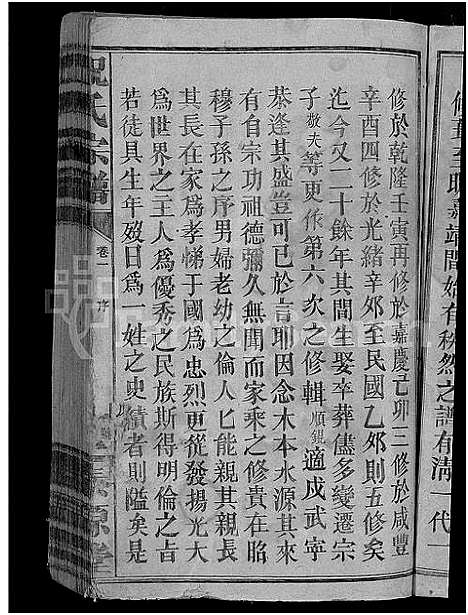 修於乾隆壬寅再修於嘉慶己卯三修於咸豐
辛酉四修於光緒辛卯至民國乙卯則五修矣
迄今又二十餘年其間生娶卒葬儘多變遷宗
子敬夫等更作第六次之修輯順鋧適戍武寧
恭逢其盛豈可已於言耶因念木本水源其來
有自宗功祖德彌久無聞而家乘之修貴在昭
穆子孫之序男婦老幼之倫人匕能親其親長
其長在家爲孝悌于國爲忠烈更從發揚光大
爲世界之主人爲優秀之民族斯得明倫之旨
若徒具生年歿日爲一姓之史績者則隘矣是
祝氏宗譜
卷一 序
源堂
修葺至明嘉靖間始有秩然之譜有淸一代